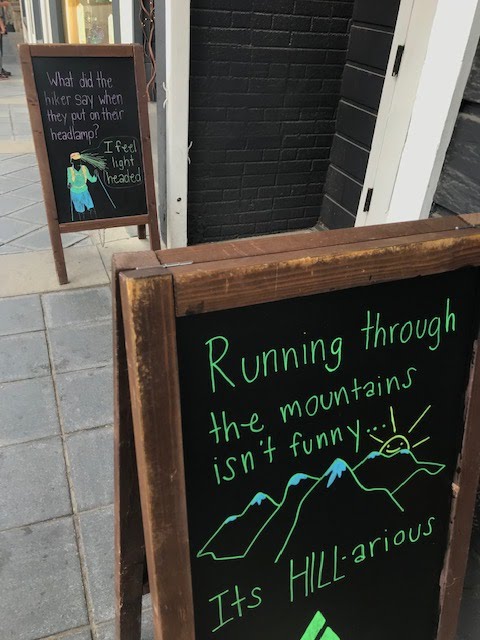 What did the
hiker say when
they put on their
headlamp?
I feel
light
headed
Running through
the mountains
isn't funny...
Its HILL-arious